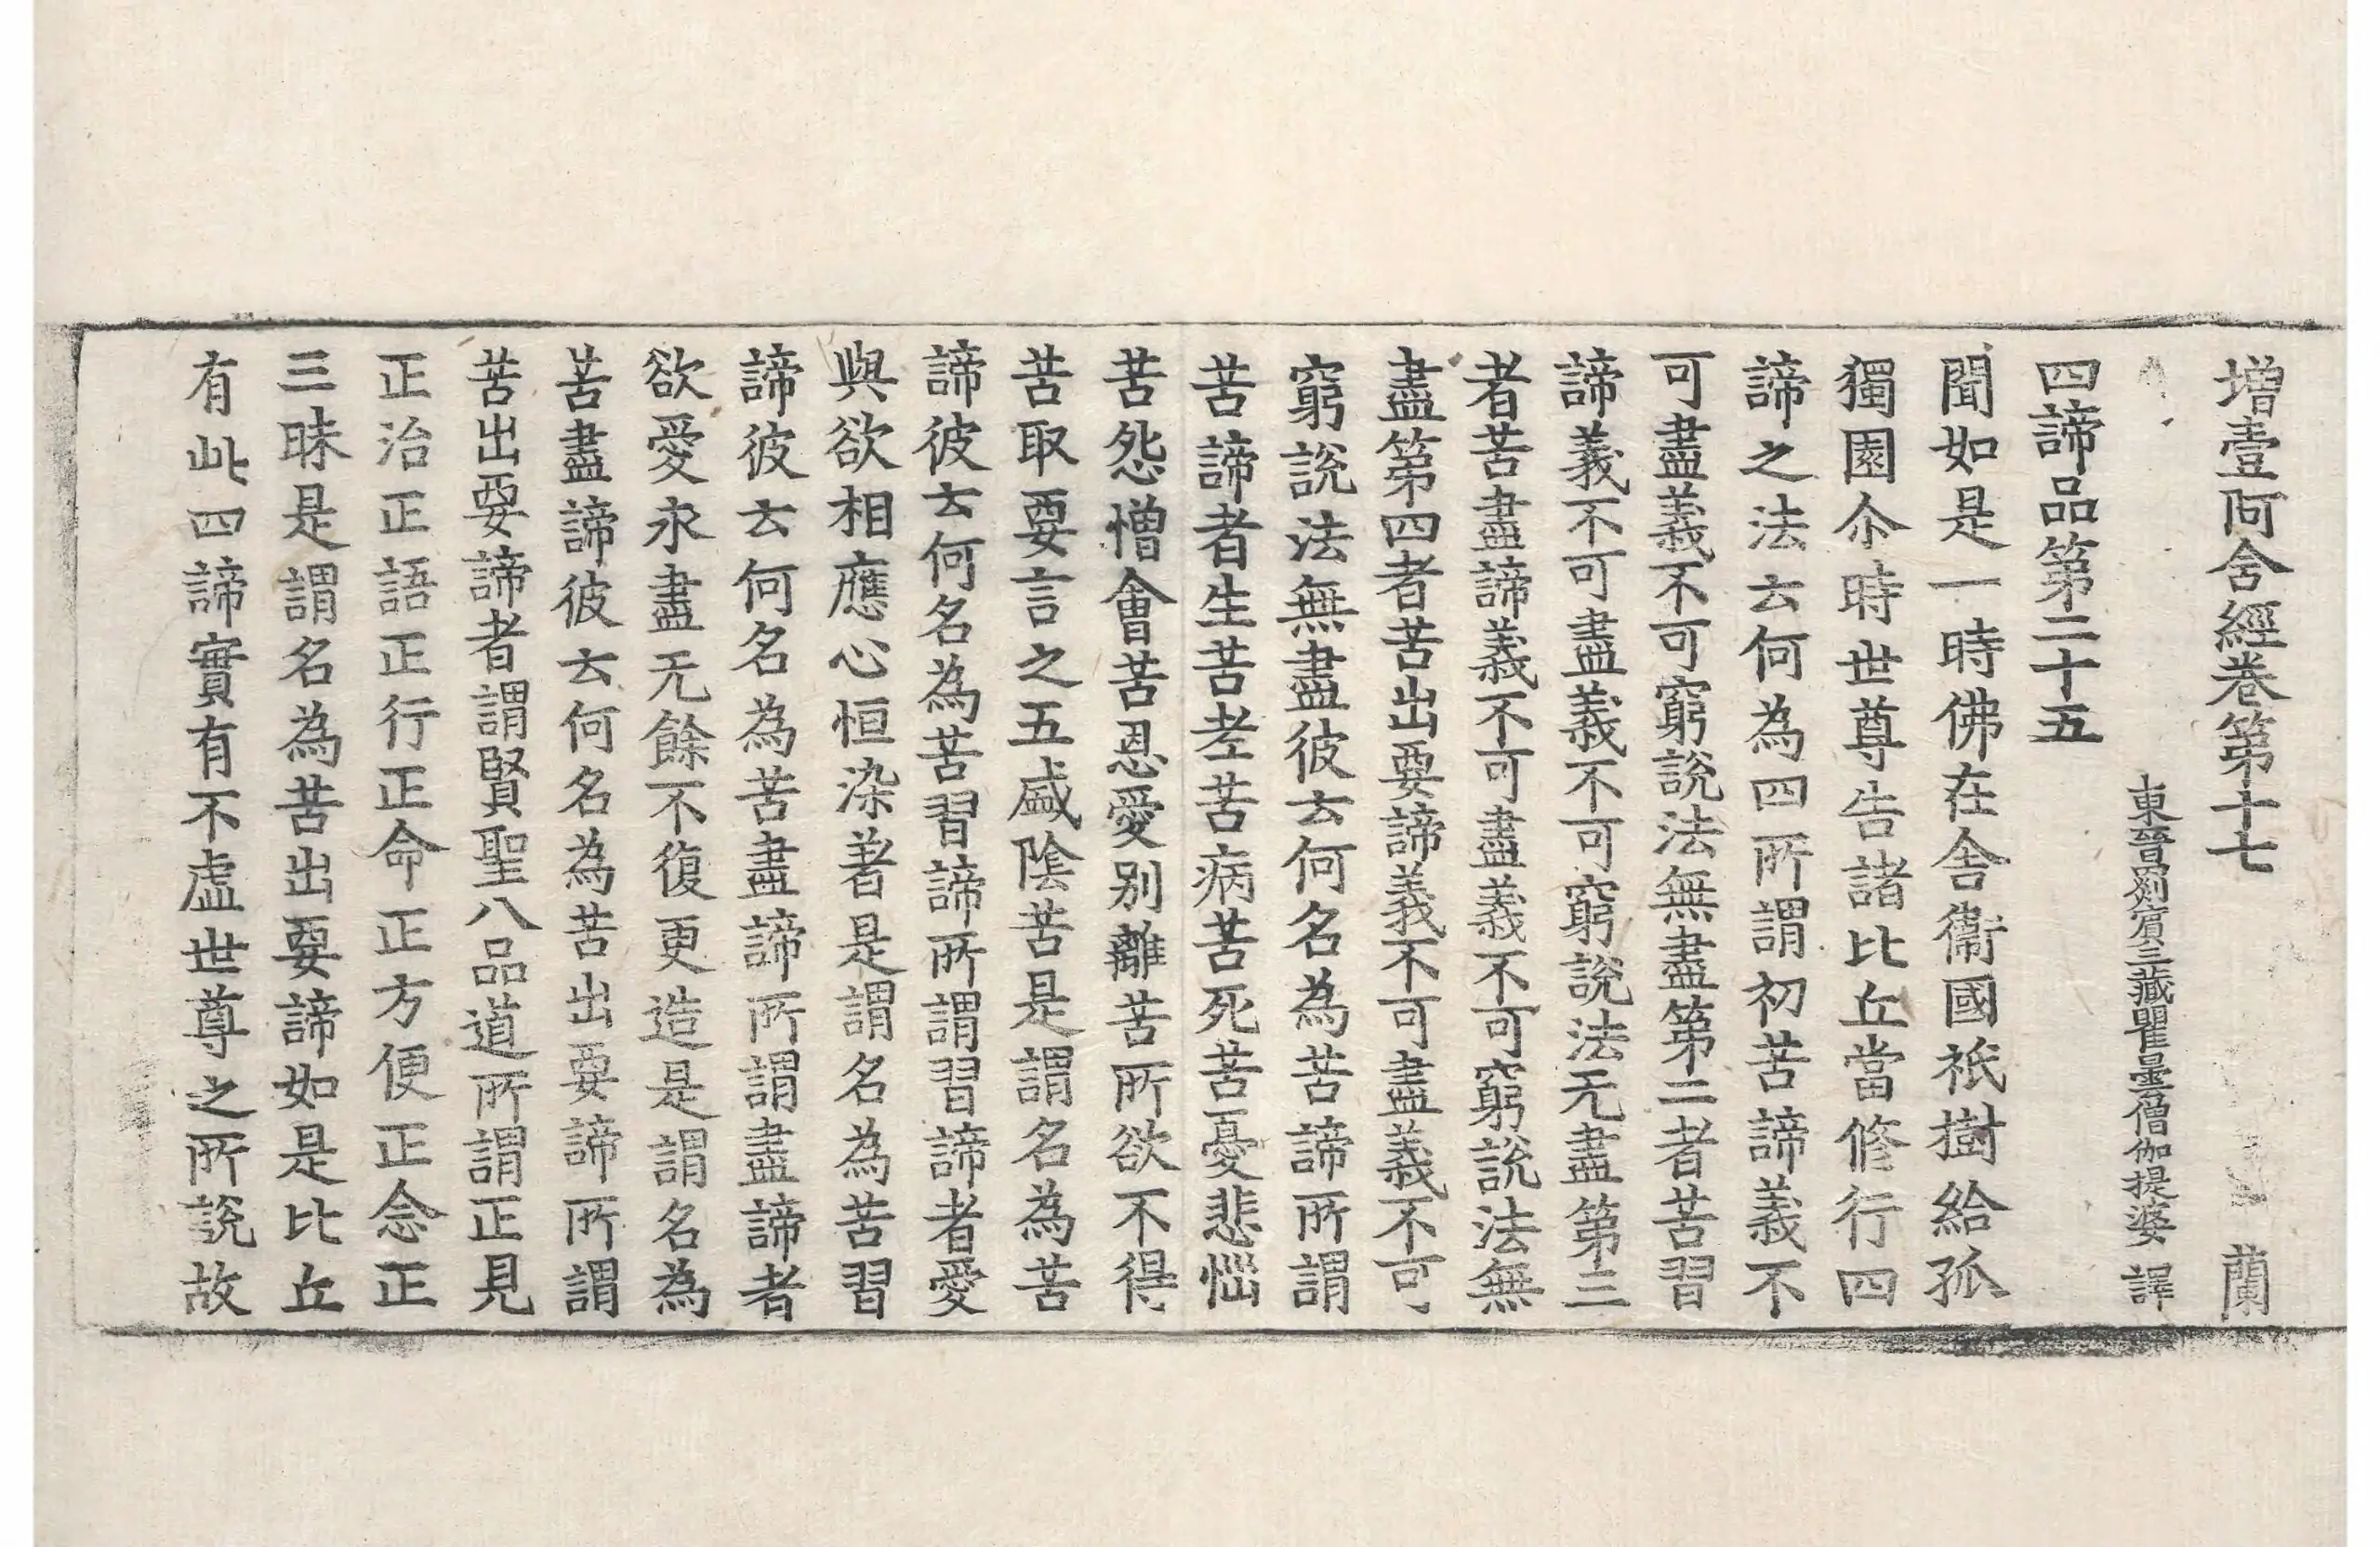 増壹阿含經卷第十七 蘭
東晉罽賓三藏瞿曇僧伽提婆 譯
四諦品第二十五
聞如是一時佛在舍衞國祇樹給孤
獨園尒時世尊告諸比丘當修行四
諦之法云何為四所謂初苦諦義不
可盡義不可窮說法無盡第二者苦習
諦義不可盡義不可窮說法无盡第三
者苦盡諦義不可盡義不可窮說法無
盡第四者苦出要諦義不可盡義不可
窮說法無盡彼云何名為苦諦所謂
苦諦者生苦老苦病苦死苦憂悲惱
苦怨憎會苦恩愛别離苦所欲不得
苦取要言之五盛陰苦是謂名為苦
諦彼云何名為苦習諦所謂習諦者愛
與欲相應心恒染著是謂名為苦習
諦彼云何名為苦盡諦所謂盡諦者
欲愛永盡无餘不復更造是謂名為
苦盡諦彼云何名為苦出要諦所謂
苦出要諦者謂賢聖八品道所謂正見
正治正語正行正命正方便正念正
三昧是謂名為苦出要諦如是比丘
有此四諦實有不虛世尊之所說故